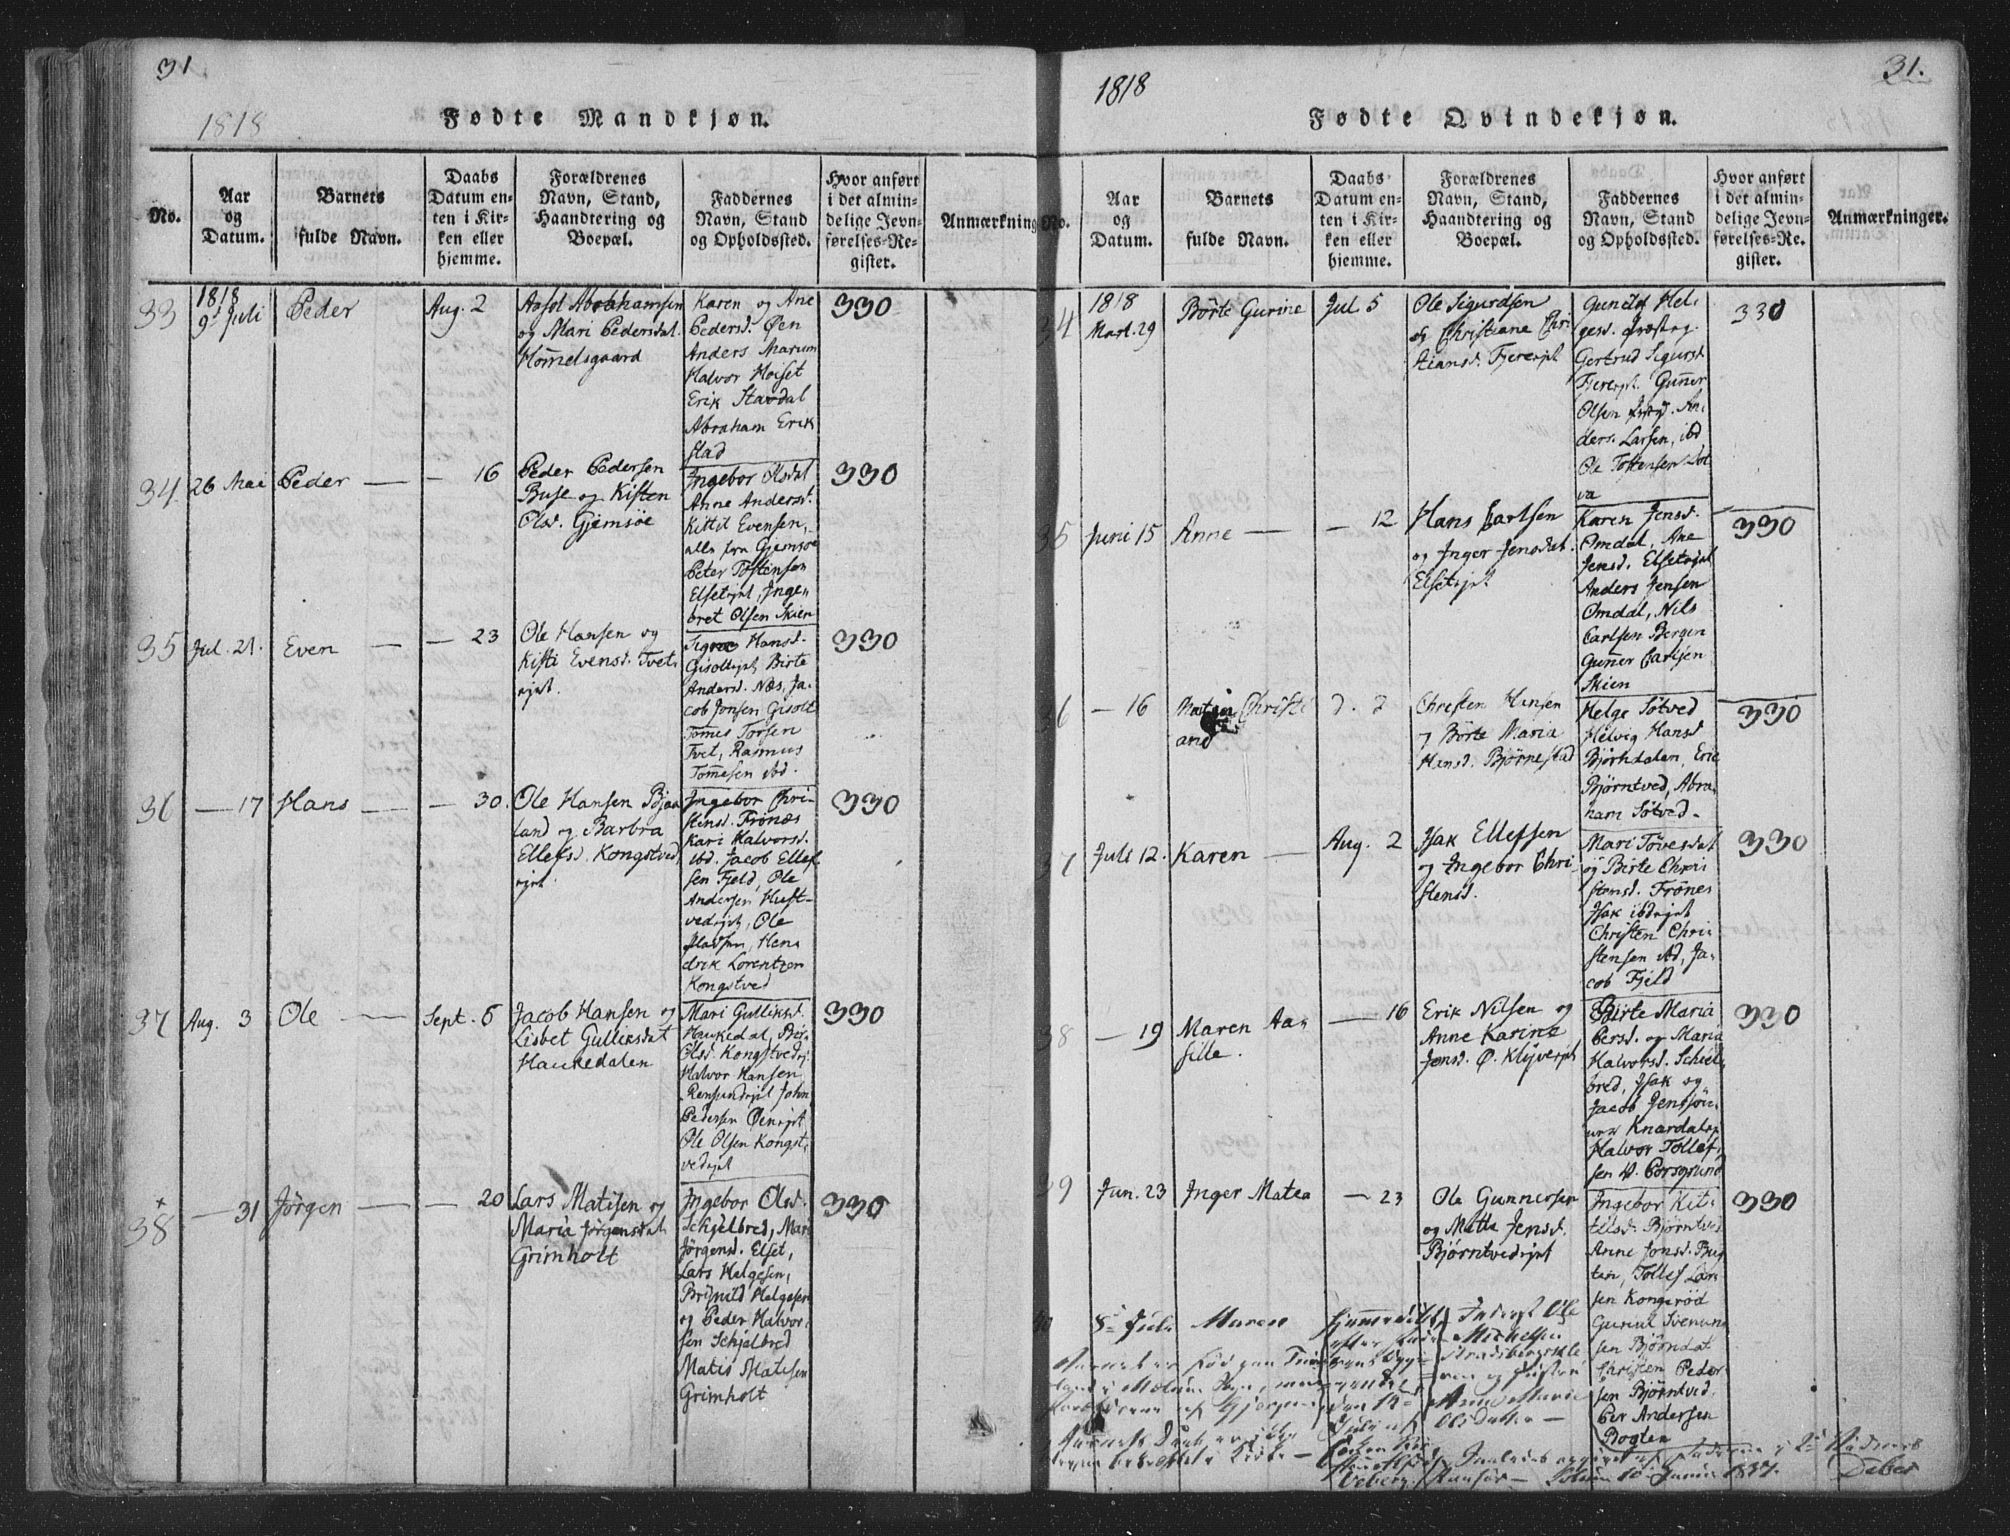 31
1818
Fødte Mandkjøn.
No.
Aar
og
Datum.
Barnets
fulde Navn.
Daabs
Datum en-
ten i Kir-
ken eller
hjemme.
Forældrenes
Navn, Stand,
Haandtering og
Boepæl.
Faddernes
Navn, Stand
og Opholdssted.
Hvor anført
i det almin-
delige Jevn-
førelses-Re-
gister.
Anmærkning
33
1818
9 Juli
Peder
Aug. 2
Axsel Abrahamsen
og Mari Pedersdat.
Hommelsgaard
Karen og Ane
Pedersd. Øen
Anders Marum
Halvor Hoiset
Erik Stavdal
Abraham Erik
stad
330
34
26 Mai
Peder
- 16
Peder Pedersen
Buse og Kisten
Olsd. Gjemsøe
Ingebor Olsdat
Anne Andersd.
Kittil Evensen,
alle fra Gjemsøe
Peter Tostensen
Elsetejet, Inge-
bret Olsen Skien
330
35
Jul. 21.
Even
- 23
Ole Hansen og
Kisti Evensd. Tvet.
ejet.
Hansd.
Gisoltejet, Birte
Andersd. Næs, Ja-
cob Jonsen Gisolt
Tomes Torsen
Tvet, Rasmus
Tommesen ibd.
330
36
- 17
Hans
- 30.
Ole Hansen Bjaa
land og Barbra
Ellefsd. Kongstved
ejet.
Ingebor Chri-
stensd. Frönæs
Kari Halvorsd.
ibd. Jacob Ellef
sen Fjeld, Ole
Andersen Hust-
vedejet, Ole
Madsen, Hen-
drik Lorentzen
Kongstved
330
37
Aug. 3
Ole
Sept. 6
Jacob Hansen og
Lisbet Gulliksdat
Haukedalen
Mari Gulliksd.
Haukedal, Bör-
Olsd. Kongstvedej.
Halvor Hansen
Rensundejet John
Pedersen Øenejet
Ole Olsen Kongst-
vedejet
330
+
38
- 31
Jörgen
- 20
Lars Matisen og
Maria Jörgensdat
Grimholt
Ingebor Olsd.
Schjelbred, Mari
Jörgensd. Elset,
Lars Helgesen,
Brynild Helgesen
og Peder Halvor-
sen Schjelbred
Matis Matisen
Grimholt
330
31.
1818
Fødte Qvindekjøn.
No.
Aar
og
Datum.
Barnets
fulde Navn.
Daabs-
Datum en-
ten i Kir-
ken eller
hjemme.
Forældrenes
Navn, Stand,
Haandtering og
Boepæl.
Faddernes
Navn, Stand
og Opholdssted.
Hvor anført
i det almin-
delige Jevn-
førelses-Re.
gister.
Anmærkninger.
34
1818
Mart. 29
Börte Gurine
Jul 5
Ole Sigurdsen
og Christiane Chri
stiansd. Fjerejet
Gunild Hel-
gesd.
Gertrud Sigursd
Fjerejet. Gunner
Olsen An-
ders Larsen, ibd
Ole Tostensen
330
35
Juni 15
Anne
- 12
Hans Carlsen
og Inger Jensdat.
Elsetejet
Karen Jensd.
Omdal, Ane
Jensd. Elsetejet
Anders Jensen
Omdal, Nils
Carlsen Bergen
Gunner Carlsen
Skien
330
36
- 16
Christi
and
Christen Hansen
og Börte Maria
Hansd. Bjørnestad
Helge Søtved
Helvig Hansd
Bjørndalen, Eric
Bjørntved, Abra-
ham Søtved.
330
37
Juli 12.
Karen
Aug. 2
Isak Ellefsen
og Ingebor Chri-
stensd.
Mari Tovesdat
og Birte Chri
stensd. Frönes
Isak ibdejet
Christen Chri-
stensen ibd, Ja-
cob Fjeld
330
38
- 19
Maren Aa-
sille.
- 16
Erik Nilsen og
Anne Karine
Jensd. Ø. Klyverejet
Birte Maria
Persd. og Maria
Halvorsd. Schiel-
bred, Isak og
Jacob
Knardalsej
Halvor Tollef-
sen V. Porsgrund
330
39
Jun. 23
Inger Matea
- 23
Ole Gunnersen
og Matte Jensd.
Bjørntvedejet
Ingebor Kit-
tilsd. Bjørntved
Anne Jonsd. Bug
ten, Tollef Lar-
sen Kongerød
sen Bjørndal
Christen Peder
sen Bjørntved,
Per Andersen
Bogten
330
40
8 Juli
Maren
Hjemmedøbt
Ole
Michelsen
Anne Marie
Olsdatter
1837.